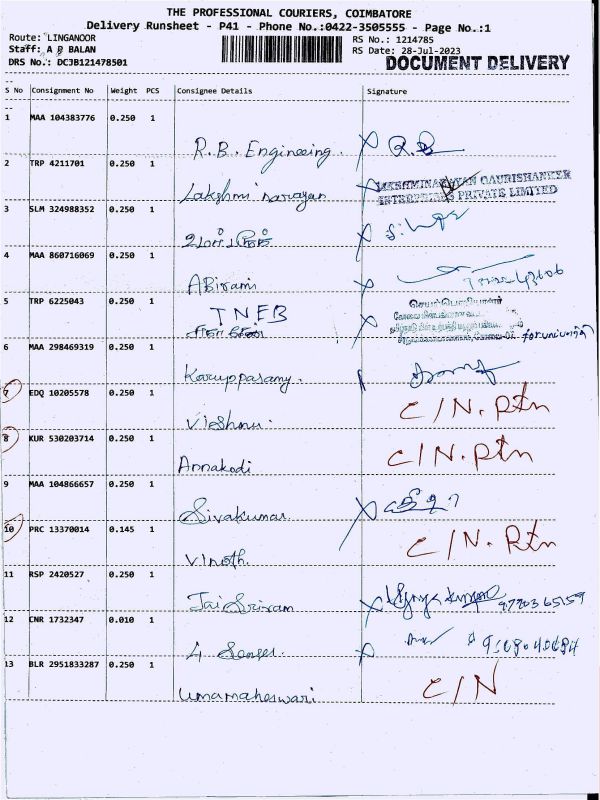 THE PROFESSIONAL COURIERS, COIMBATORE
Delivery Runsheet - P41 - Phone No.:0422-3505555 - Page No.:1
Route: LINGANOOR
RS No.: 1214785
Staff: A P BALAN
RS Date: 28-Jul-2023
DRS No.: DCJB121478501
DOCUMENT DELIVERY
S No Consignment No Weight PCS Consignee Details Signature
1 MAA 104383776 0.250 1
R.B. Engineering R.B
2 TRP 4211701 0.250 1
Lakshmi narayan LAKSHMINARAYAN GAURISHANKER
ENTERPRISES PRIVATE LIMITED
3 SLM 324988352 0.250 1
4 MAA 860716069 0.250 1
ABirami
5 TRP 6225043 0.250 1
TNEB
6 MAA 298469319 0.250 1
Karuppasamy.
7 EDQ 10205578 0.250 1
Vishnu. C/N. Rtn
8 KUR 530203714 0.250 1
Annakodi C/N. Rtn
9 MAA 104866657 0.250 1
Sivakumar.
10 PRC 13370014 0.145 1
Vinoth. C/N. Rtn
11 RSP 2420527 0.250 1
Jai Sriram
12 CNR 1732347 0.010 1
4 Senses.
13 BLR 2951833287 0.250 1
Umamaheswari C/N